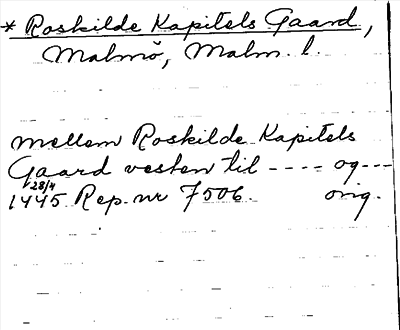 * Roskilde Kapitels Gaard,
Malmö, Malm. l.
mellem Roskilde Kapitels
Gaard vesten til ---- og ---
28/4
1445. Rep. nr 7506. orig.